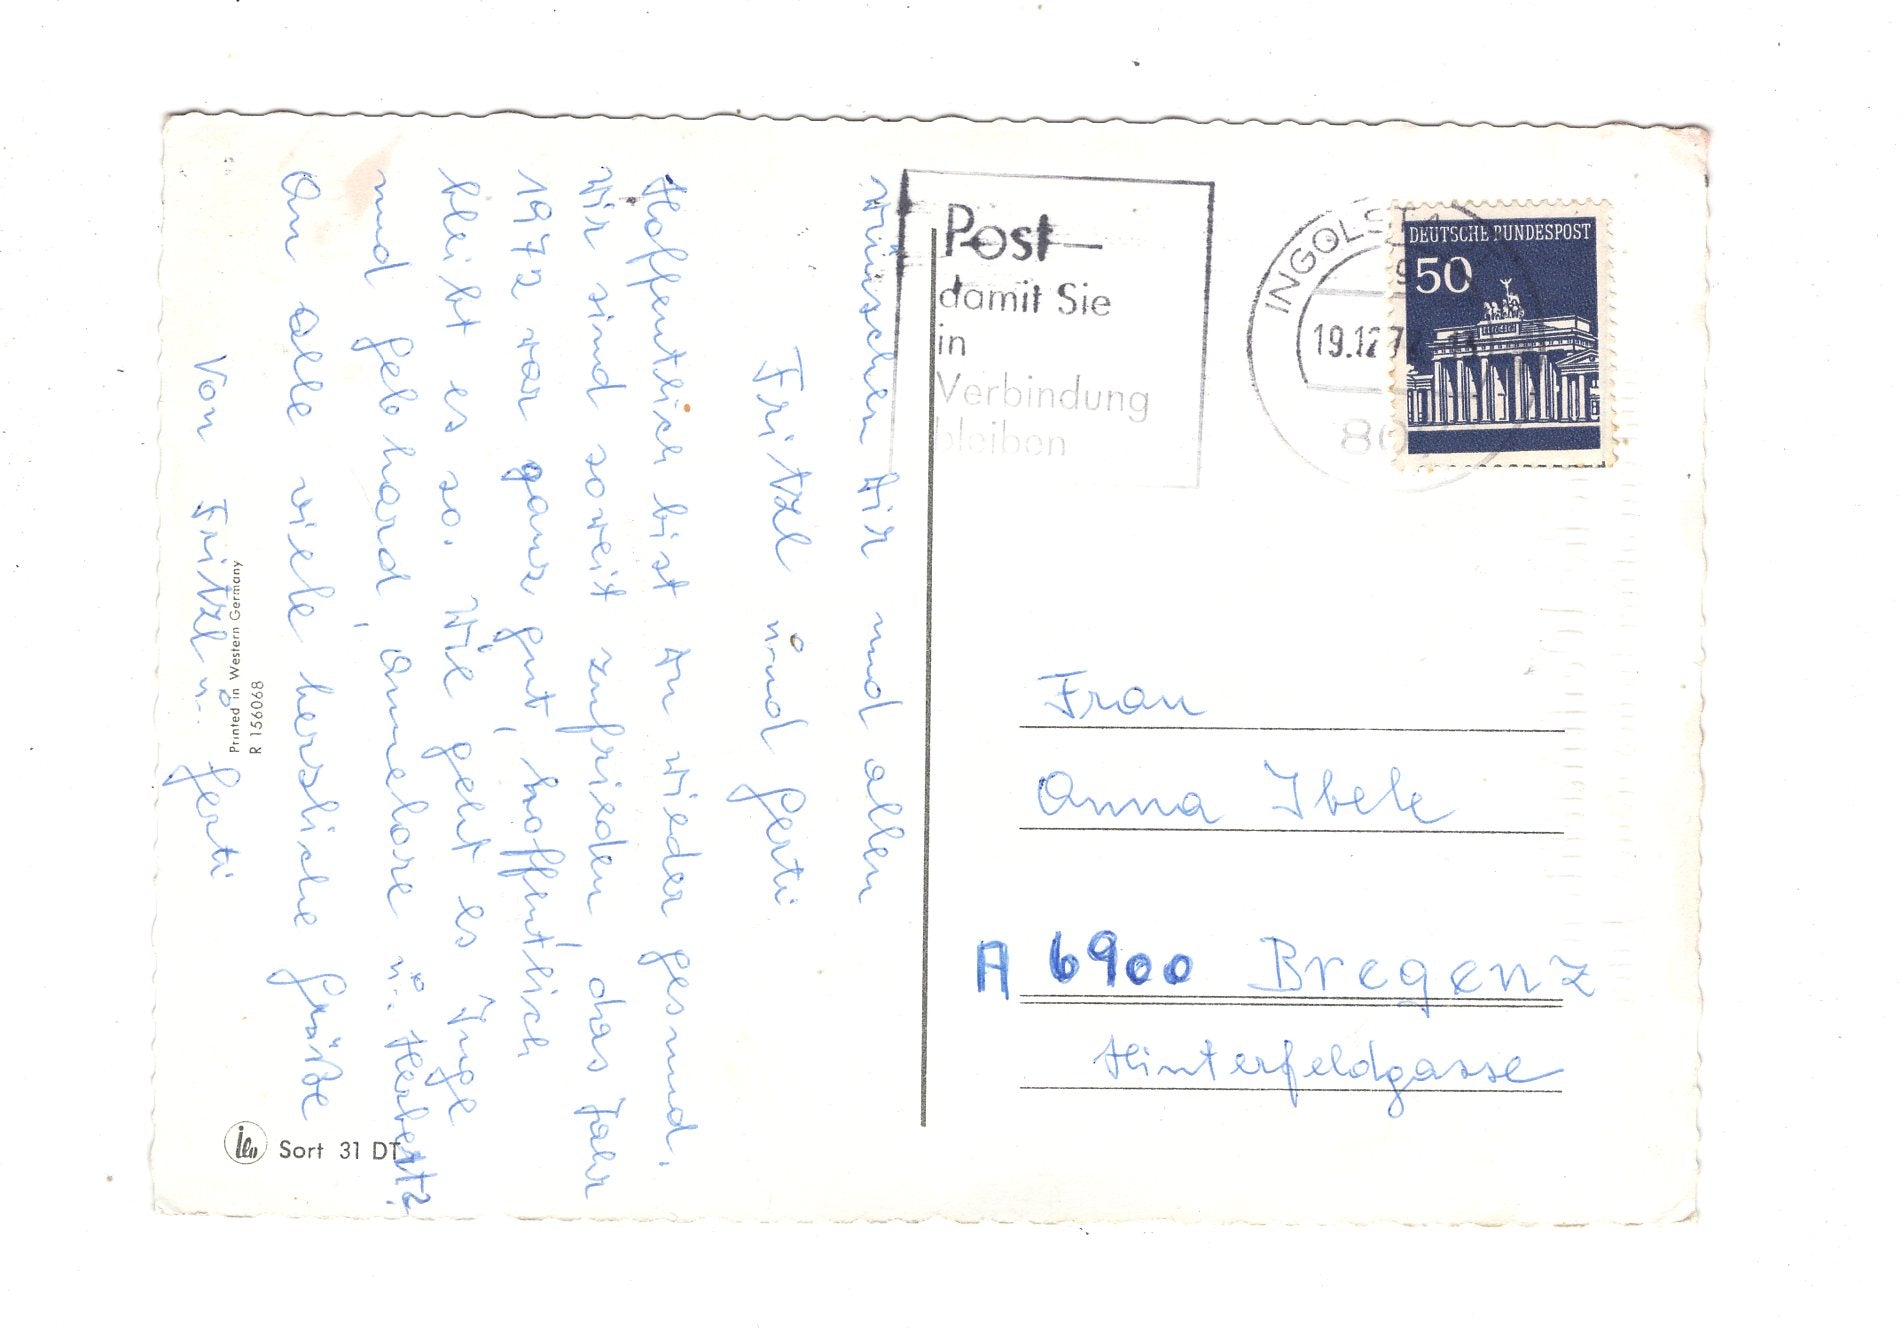 wünschen Dir und allen
Fritzl und Gerti
Hoffentlich bist Du wieder gesund.
Wir sind soweit zufrieden, das Jahr
1972 war ganz gut, hoffentlich
bleibt es so. Wie geht es Inge
und Gebhard, Annelore u. Herbert?
An alle viele herzliche Grüße
Von Fritzl u. Gerti
Printed in Western Germany
R 156068
Sort 31 DT
Post-
damit Sie
in
Verbindung
bleiben
INGOLSTA
19.12.7
80
DEUTSCHE BUNDESPOST
50
Frau
Anna Ibele
A 6900 Bregenz
Hinterfeldgasse